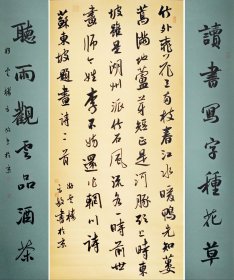 讀書寫字種花草
竹外桃花三兩枝春江水暖鴨先知蔞
蒿滿地蘆芽短正是河豚欲上時東
坡雖是湖州派竹石風流各一時前世
畫師今姓李不妨還作輞川詩
蘇東坡題畫詩二首
書於京
聽雨觀云品酒茶